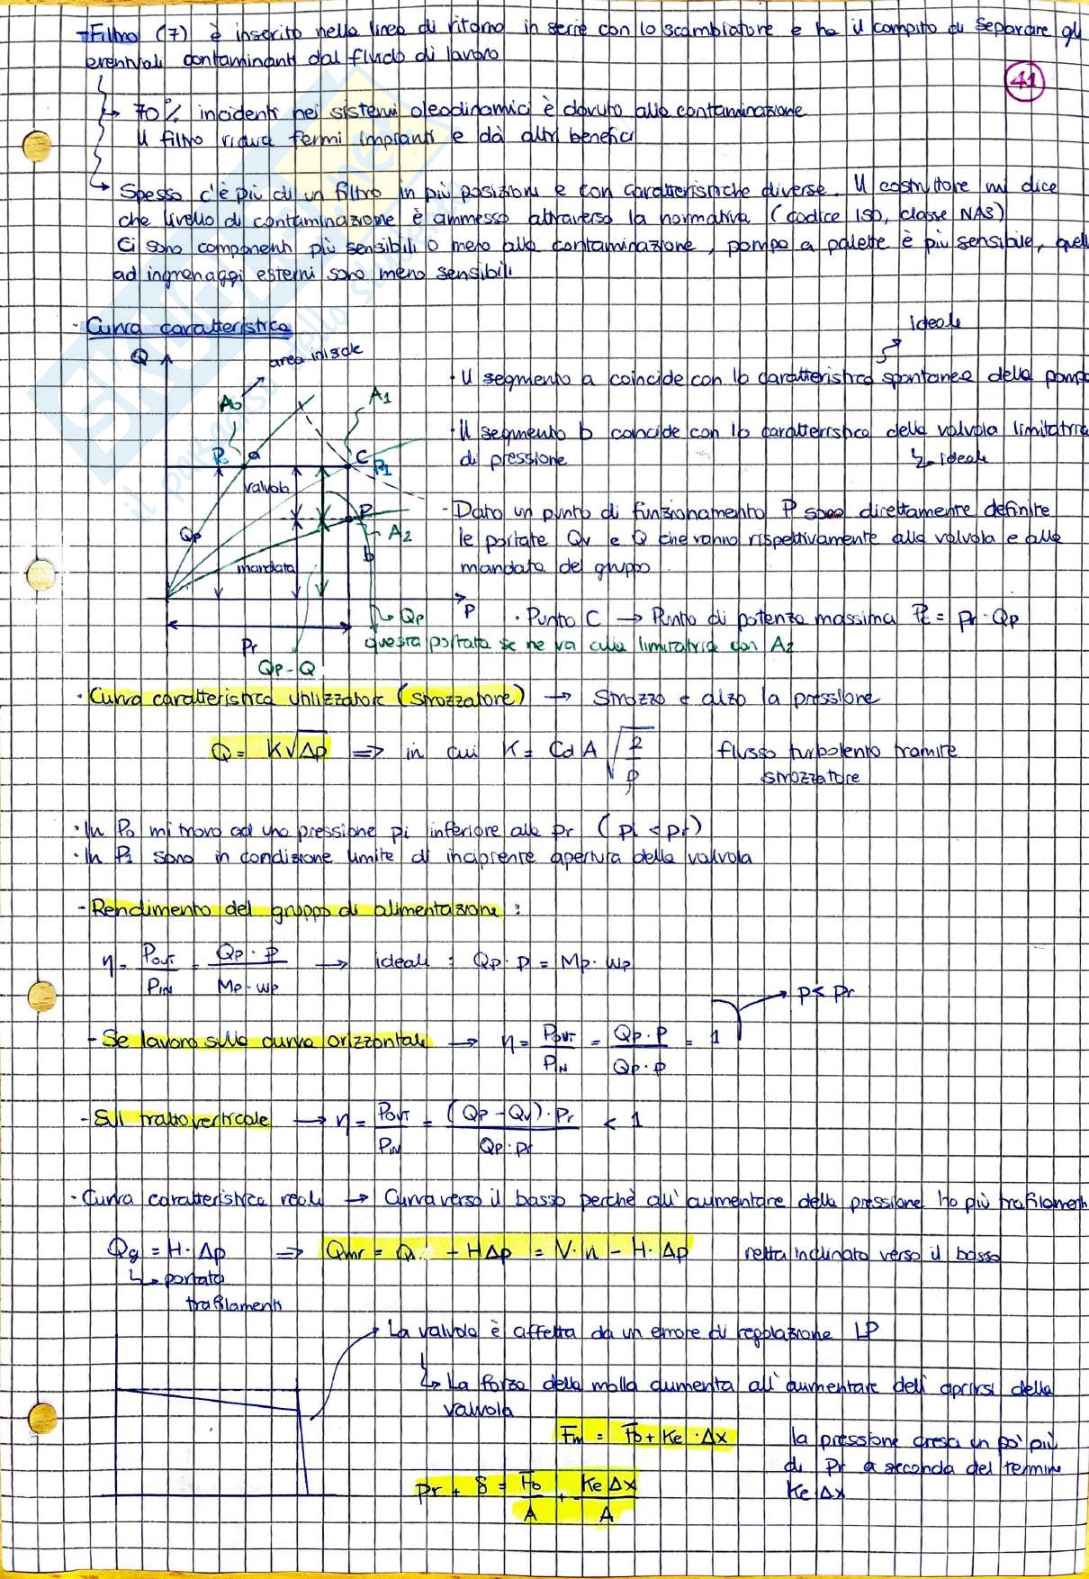 - Filtro (7) è inserito nella linea di ritorno in serie con lo scambiatore e ha il compito di separare gli
eventuali contaminanti dal fluido di lavoro
41
70% incidenti nei sistemi oleodinamici è dovuto alla contaminazione
Il filtro riduce fermi impianti e dà altri benefici
Spesso c'è più di un filtro in più posizioni e con caratteristiche diverse. Il costruttore mi dice
che livello di contaminazione è ammesso attraverso la normativa (codice ISO, classe NAS)
Ci sono componenti più sensibili o meno alla contaminazione, pompa a palette è più sensibile, quelle
ad ingranaggi esterni sono meno sensibili
· Curva caratteristica
ideale
Q
area iniziale
· Il segmento a coincide con la caratteristica spontanea della pompa
A0
A1
· Il segmento b coincide con la caratteristica della valvola limitatrice
di pressione
ideale
P0 a C P1
valvola
- Dato un punto di funzionamento P sono direttamente definite
le portate Qv e Q che vanno rispettivamente alla valvola e alla
mandata del gruppo
Qp
P
A2
b
mandata
p
Qp
· Punto C → Punto di potenza massima Pc = pr · Qp
Pr
questa portata se ne va alla limitatrice con A2
Qp-Q
· Curva caratteristica utilizzatore (strozzatore) → Strozzo e alzo la pressione
Q = K√Δp ⇒ in cui K = Cd A √2/ρ flusso turbolento tramite
strozzatore
· In P0 mi trovo ad una pressione pi inferiore alla pr (pi < pr)
· In P1 sono in condizione limite di incipiente apertura della valvola
- Rendimento del gruppo di alimentazione :
η = Pout/PIN = Qp · p/Mp · wp → ideali : Qp · p = Mp · wp
p < pr
- Se lavoro sulla curva orizzontale → η = Pout/PIN = Qp · p/Qp · p = 1
- Sul tratto verticale → η = Pout/PIN = (Qp - Qv) · pr/Qp · pr < 1
· Curva caratteristica reale → Curva verso il basso perchè all'aumentare della pressione ho più trafilamenti
Qg = H · Δp ⇒ Qmr = Q - HΔp = V · n - H · Δp retta inclinata verso il basso
portata
trafilamenti
La valvola è affetta da un errore di regolazione LP
La forza della molla aumenta all'aumentare dell'aprirsi della
valvola
Fm = F0 + Ke · Δx la pressione cresce un po' più
di Pr a seconda del termine
Ke Δx
pr + δ = F0/A + Ke Δx/A